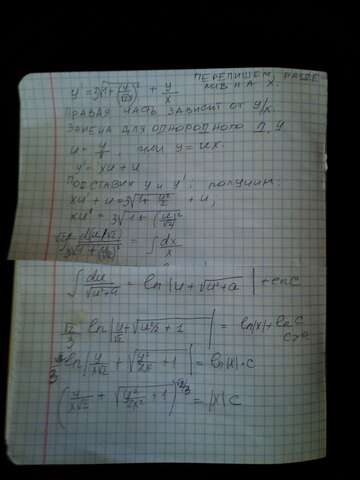 y' = 3√(1+(y/(√2x))²) + y/x ПЕРЕПИШЕМ, РАЗДЕ
ЛИВ НА X.
ПРАВАЯ ЧАСТЬ ЗАВИСИТ ОТ y/x.
ЗАМЕНА ДЛЯ ОДНОРОДНОГО Д.У
u = y/x, или y = ux.
y' = xu' + u
ПОДСТАВИМ y и y', получим:
xu' + u = 3√(1+u²/2) + u,
xu' = 3√(1+(u/√2)²)
√2∫ d(u/√2) / 3√(1+(u/√2)²) = ∫ dx/x
∫ du/√(u²+a) = ln|u+√(u²+a)| + ln C
√2/3 ln|u/√2 + √(u²/2+1)| = ln|x| + ln C
C>0
ln|y/(x√2) + √(y²/2x²+1)| = ln|x|·C
(y/(x√2) + √(y²/2x²+1))^(√2/3) = |x|C